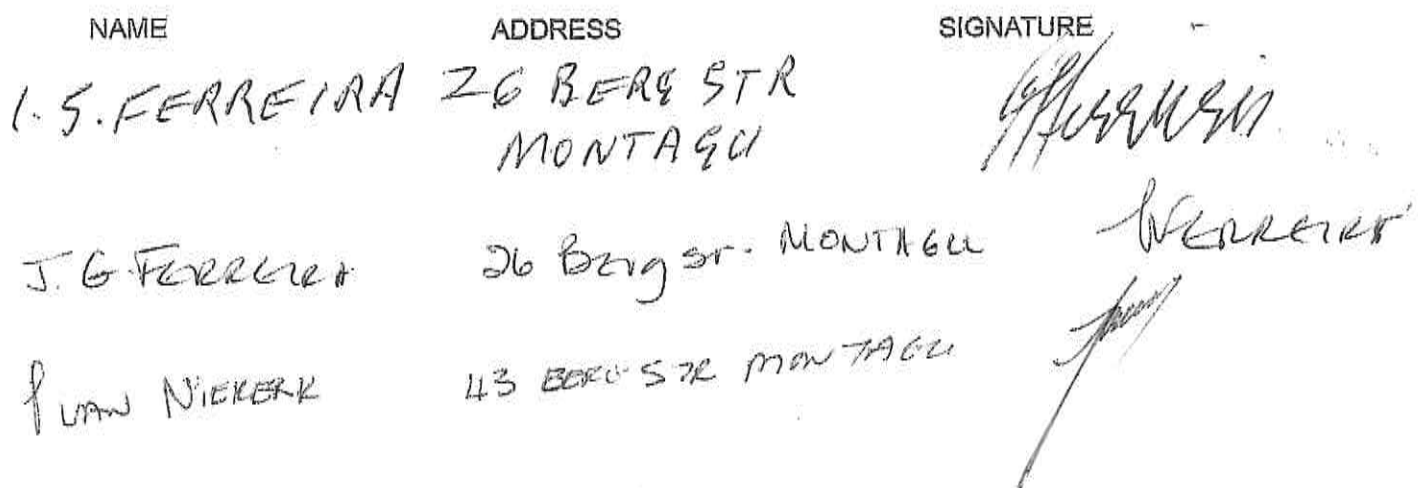 NAME ADDRESS SIGNATURE
I. S. FERREIRA 26 BERG STR
MONTAGU
J. G FERREIRA 26 Berg ST. MONTAGU FERREIRA
P VAN NIEKERK 43 BERG STR MONTAGU